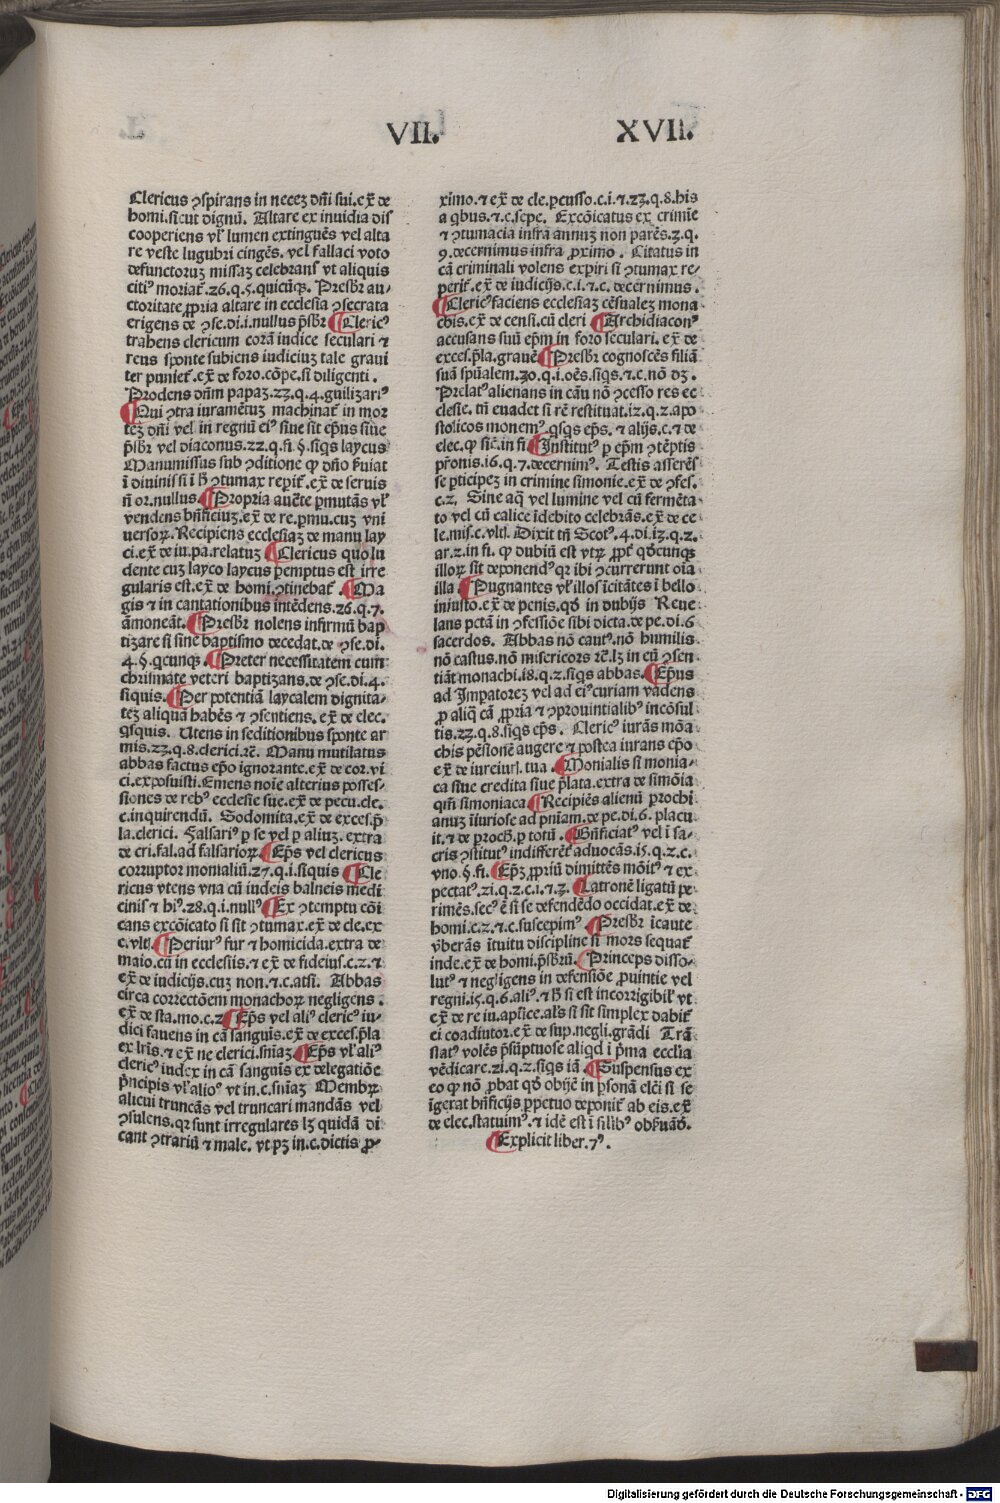 VII. XVII.
Clericus ꝯspirans in necez dn̄i sui.ex̄ de
homi.sicut dignū. Altare ex inuidia dis
cooperiens vl' lumen extinguēs vel alta
re veste lugubri cingēs. vel fallaci voto
defunctoruz missaz celebrans vt aliquis
citiꝰ moriat̄.26.q.5.quicūqꝫ. Presbr̄ au-
ctoritate ꝓpria altare in ecclesia ꝯsecrata
erigens de ꝯse.di.i.nullus p̄sbr̄ ¶Clericꝰ
trahens clericum corā iudice seculari ⁊
reus sponte subiens iudiciuz tale graui
ter puniet̄.ex̄ de foro.cōpe.si diligenti.
Prodens dn̄m papaz.23.q.4.guilizariꝰ
¶Qui ꝯtra iuramētuz machinat̄ in mor
tēz dn̄i vel in regnū eiꝰ siue sit ep̄us siue
p̄sbr̄ vel diaconus.22.q.fi.§.siqs laycus
Manumissus sub ꝯditione ꝙ dn̄o ẜuiat
ī diuinis si ī h̄ ꝯtumax rep̄it̄.ex̄ de seruis
n̄ or.nullus.¶Propria auc̄te ꝑmutās vl'
vendens bn̄ficiuz.ex̄ de re.ꝑmu.cuz vni
uersoꝝ. Recipiens ecclesiaz de manu lay
ci.ex̄ de iu.pa.relatuz ¶Clericus quo lu
dente cuz layco laycus ꝑemptus est irre
gularis est.ex̄ de homi.ꝯtinebat̄. ¶Ma
gis ⁊ in cantationibus intēdens.26.q.7.
āmoneāt.¶Presbr̄ nolens infirmū bap
tizare si sine baptismo decedat.de ꝯse.di.
4.§.qcunqꝫ.¶Preter necessitatem cum
chrismate veteri baptizans.de ꝯse.di.4.
siquis.¶Per potentiā laycalem dignita-
tez aliquā habēs ⁊ ꝯsentiens. ex̄ de elec.
qsquis. Utens in seditionibus sponte ar
mis.23.q.8.clerici.rc̄. Manu mutilatus
abbas factus ep̄o ignorante.ex̄ de cor.vi
ci.exposuisti. Emens noīe alterius posses-
siones de rebꝰ ecclesie sue.ex̄ de pecu.cle.
c.inquirendū. Sodomita.ex̄ de exces.p̄
la.clerici. Falsariꝰ ꝑ se vel ꝑ aliuz. extra
de cri.fal.ad falsarioꝝ.¶Ep̄s vel clericus
corruptor monialiū.27.q.i.siquis ¶Cle
ricus vtens vna cū iudeis balneis medi
cinis ⁊ hiꝰ.28.q.i.nullꝰ¶Ex ꝯtemptu cōi
cans excōicato si sit ꝯtumax.ex̄ de cle.ex
c.vlti.¶Periurꝰ fur ⁊ homicida.extra de
maio.cū in ecclesiis.⁊ ex̄ de fideius.c.2.⁊
ex̄ de iudicijs.cuz non.⁊.c.atsi. Abbas
circa correctōem monachoꝝ negligens.
ex̄ de sta.mo.c.2¶Ep̄s vel aliꝰ clericꝰ iu-
dici fauens in cā sanguis.ex̄ de exces.p̄la
ex lr̄is.⁊ ex̄ ne clerici.sn̄iaz.¶Ep̄s vl' aliꝰ
clericꝰ iudex in cā sanguis ex delegatiōe
p̄ncipis vl' aliꝰ vt in.c.sn̄iaz Membꝝ
alicui truncās vel truncari mandās vel
ꝯsulens.qr sunt irregulares lꝫ quidā di
cant ꝯtrariū ⁊ male. vt pꝫ in.c.dictis ꝓ-
ximo.⁊ ex̄ de cle.ꝑcusso.c.i.⁊.23.q.8.his
a qbus.⁊.c.sepe. Excōicatus ex crimīe
⁊ ꝯtumacia infra annuz non parēs.3.q.
9.decernimus infra ꝓximo. Citatus in
cā criminali volens expiri si ꝯtumax re-
perit̄.ex̄ de iudicijs.c.i.⁊.c.decernimus.
¶Clericꝰ faciens ecclesiaz cēsualez mona
chis.ex̄ de censi.cū cleri ¶Archidiaconꝰ
accusans suū ep̄m in foro seculari. ex̄ de
exces.p̄la.grauē¶Presbr̄ cognoscēs filiā
suā sp̄ualem.30.q.i.oēs.siqs.⁊.c.nō dꝫ.
Prelatꝰ alienans in cāu nō ꝯcesso res ec
clesie. tn̄ euadet si rē restituat.12.q.2.apo
stolicos monemꝰ.qsqs ep̄s. ⁊ alijs.c.⁊ de
elec.ꝙ sic̄.in fi¶Institutꝰ ꝑ ep̄m ꝯtēptis
pr̄onis.16.q.7.decernimꝰ. Testis asserēs
se ꝑticipez in crimine simonie.ex̄ de ꝯfes.
c.2. Sine aq̄ vel lumine vel cū fermēta-
to vel cū calice īdebito celebrās.ex̄ de ce
le.mis.c.vlti. Dixit tn̄ Scotꝰ.4.di.13.q.2.
ar.2.in fi. ꝙ dubiū est vtꝝ ꝓpt̄ qdcunqꝫ
illoꝝ sit deponendꝰqr ibi ꝯcurrerunt oīa
illa ¶Pugnantes vl' illos īcitātes ī bello
iniusto.ex̄ de penis.qd in dubijs Reue-
lans pctā in ꝯfessiōe sibi dicta.de pe.di.6
sacerdos. Abbas nō cautꝰ.nō humilis
nō castus.nō misericors rc̄.lꝫ in eū ꝯsen-
tiāt monachi.18.q.2.siqs abbas.¶Ep̄us
ad Imꝑatorez vel ad eiꝰ curiam vadens
ꝓ aliq̄ cā ꝓpria ⁊ ꝯprouintialibꝰ incōsul
tis.23.q.8.siqs ep̄s. Clericꝰ iurās mōa
chis pēsionē augere ⁊ postea iurans ep̄o
ex̄ de iureiur.tua.¶Monialis si monia-
ca siue credita siue p̄lata.extra de simōia
qm̄ simoniaca¶Recipiēs alienū ꝑrochi
anuz īiuriose ad pn̄iam.de pe.di.6.placu
it.⁊ de ꝑroch̄.ꝑ totū.¶Bn̄ficiatꝰ vel ī sa-
cris ꝯstitutꝰ indifferēt̄ aduocās.15.q.2.c.
vno.§.fi.¶Ep̄ꝫ ꝓpriū dimittēs mōit̄ ⁊ ex
pectatꝰ.21.q.2.c.i.⁊.3.¶Latronē ligatū ꝑe-
rimēs.secꝰ ē si se defendēdo occidat.ex̄ de
homi.c.2.⁊.c.suscepimꝰ.¶Presbr̄ īcaute
v̄berās ītuitu discipline si mors sequat̄
inde.ex̄ de homi.p̄sbr̄ū.¶Princeps disso-
lutꝰ ⁊ negligens in defensiōe ꝓuintie vel
regni.15.q.6.aliꝰ.⁊ h̄ si est incorrigibil' vt
ex̄ de re iu.aplice.als̄ si sit simplex dabit̄
ei coadiutor.ex̄ de sup.negli.grādi Trā
slatꝰ volēs p̄sūptuose aliqd ī p̄ma ecclīa
vēdicare.21.q.2.siqs iā.¶Suspensus ex
eo ꝙ nō ꝓbat qd obijcē in ꝑsonā elēci si se
īgerat bn̄ficijs ꝑpetuo deponit̄ ab eis.ex̄
de elec.statuimꝰ.⁊ idē est ī silibꝰ obẜuād.
¶Explicit liber.7ꝰ.
Digitalisierung gefördert durch die Deutsche Forschungsgemeinschaft - DFG